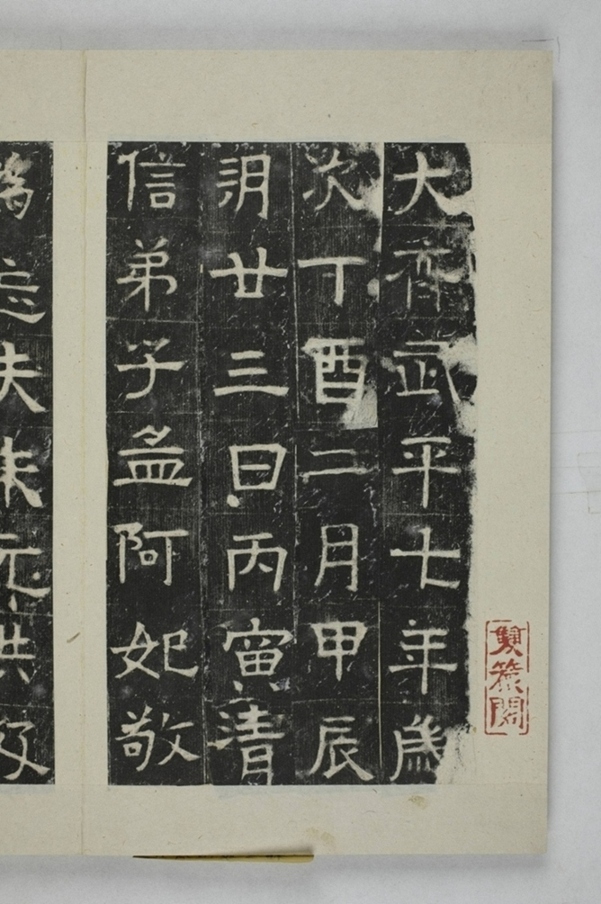 大齊武平七年歲
次丁酉二月甲辰
朔廿三日丙寅清
信弟子孟阿妃敬
為忘夫朱元洪及